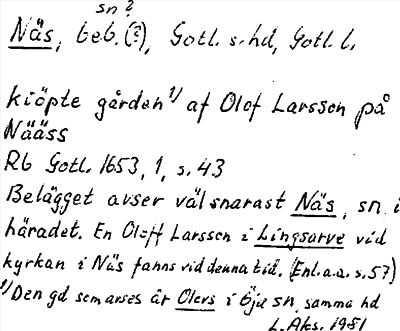 sn?
Näs, beb.(?), Gotl. s. hd, Gotl. l.
kiöpte gården 1) af Olof Larsson på
Nääss
Rb Gotl. 1653, 1, s. 43
Belägget avser väl snarast Näs, sn i
häradet. En Oloff Larsson i Lingsarve vid
kyrkan i Näs fanns vid denna tid. (Enl. a.a. s. 57)
1) Den gd som avses är Olers i Öja sn, samma hd
L. Aks. 1981